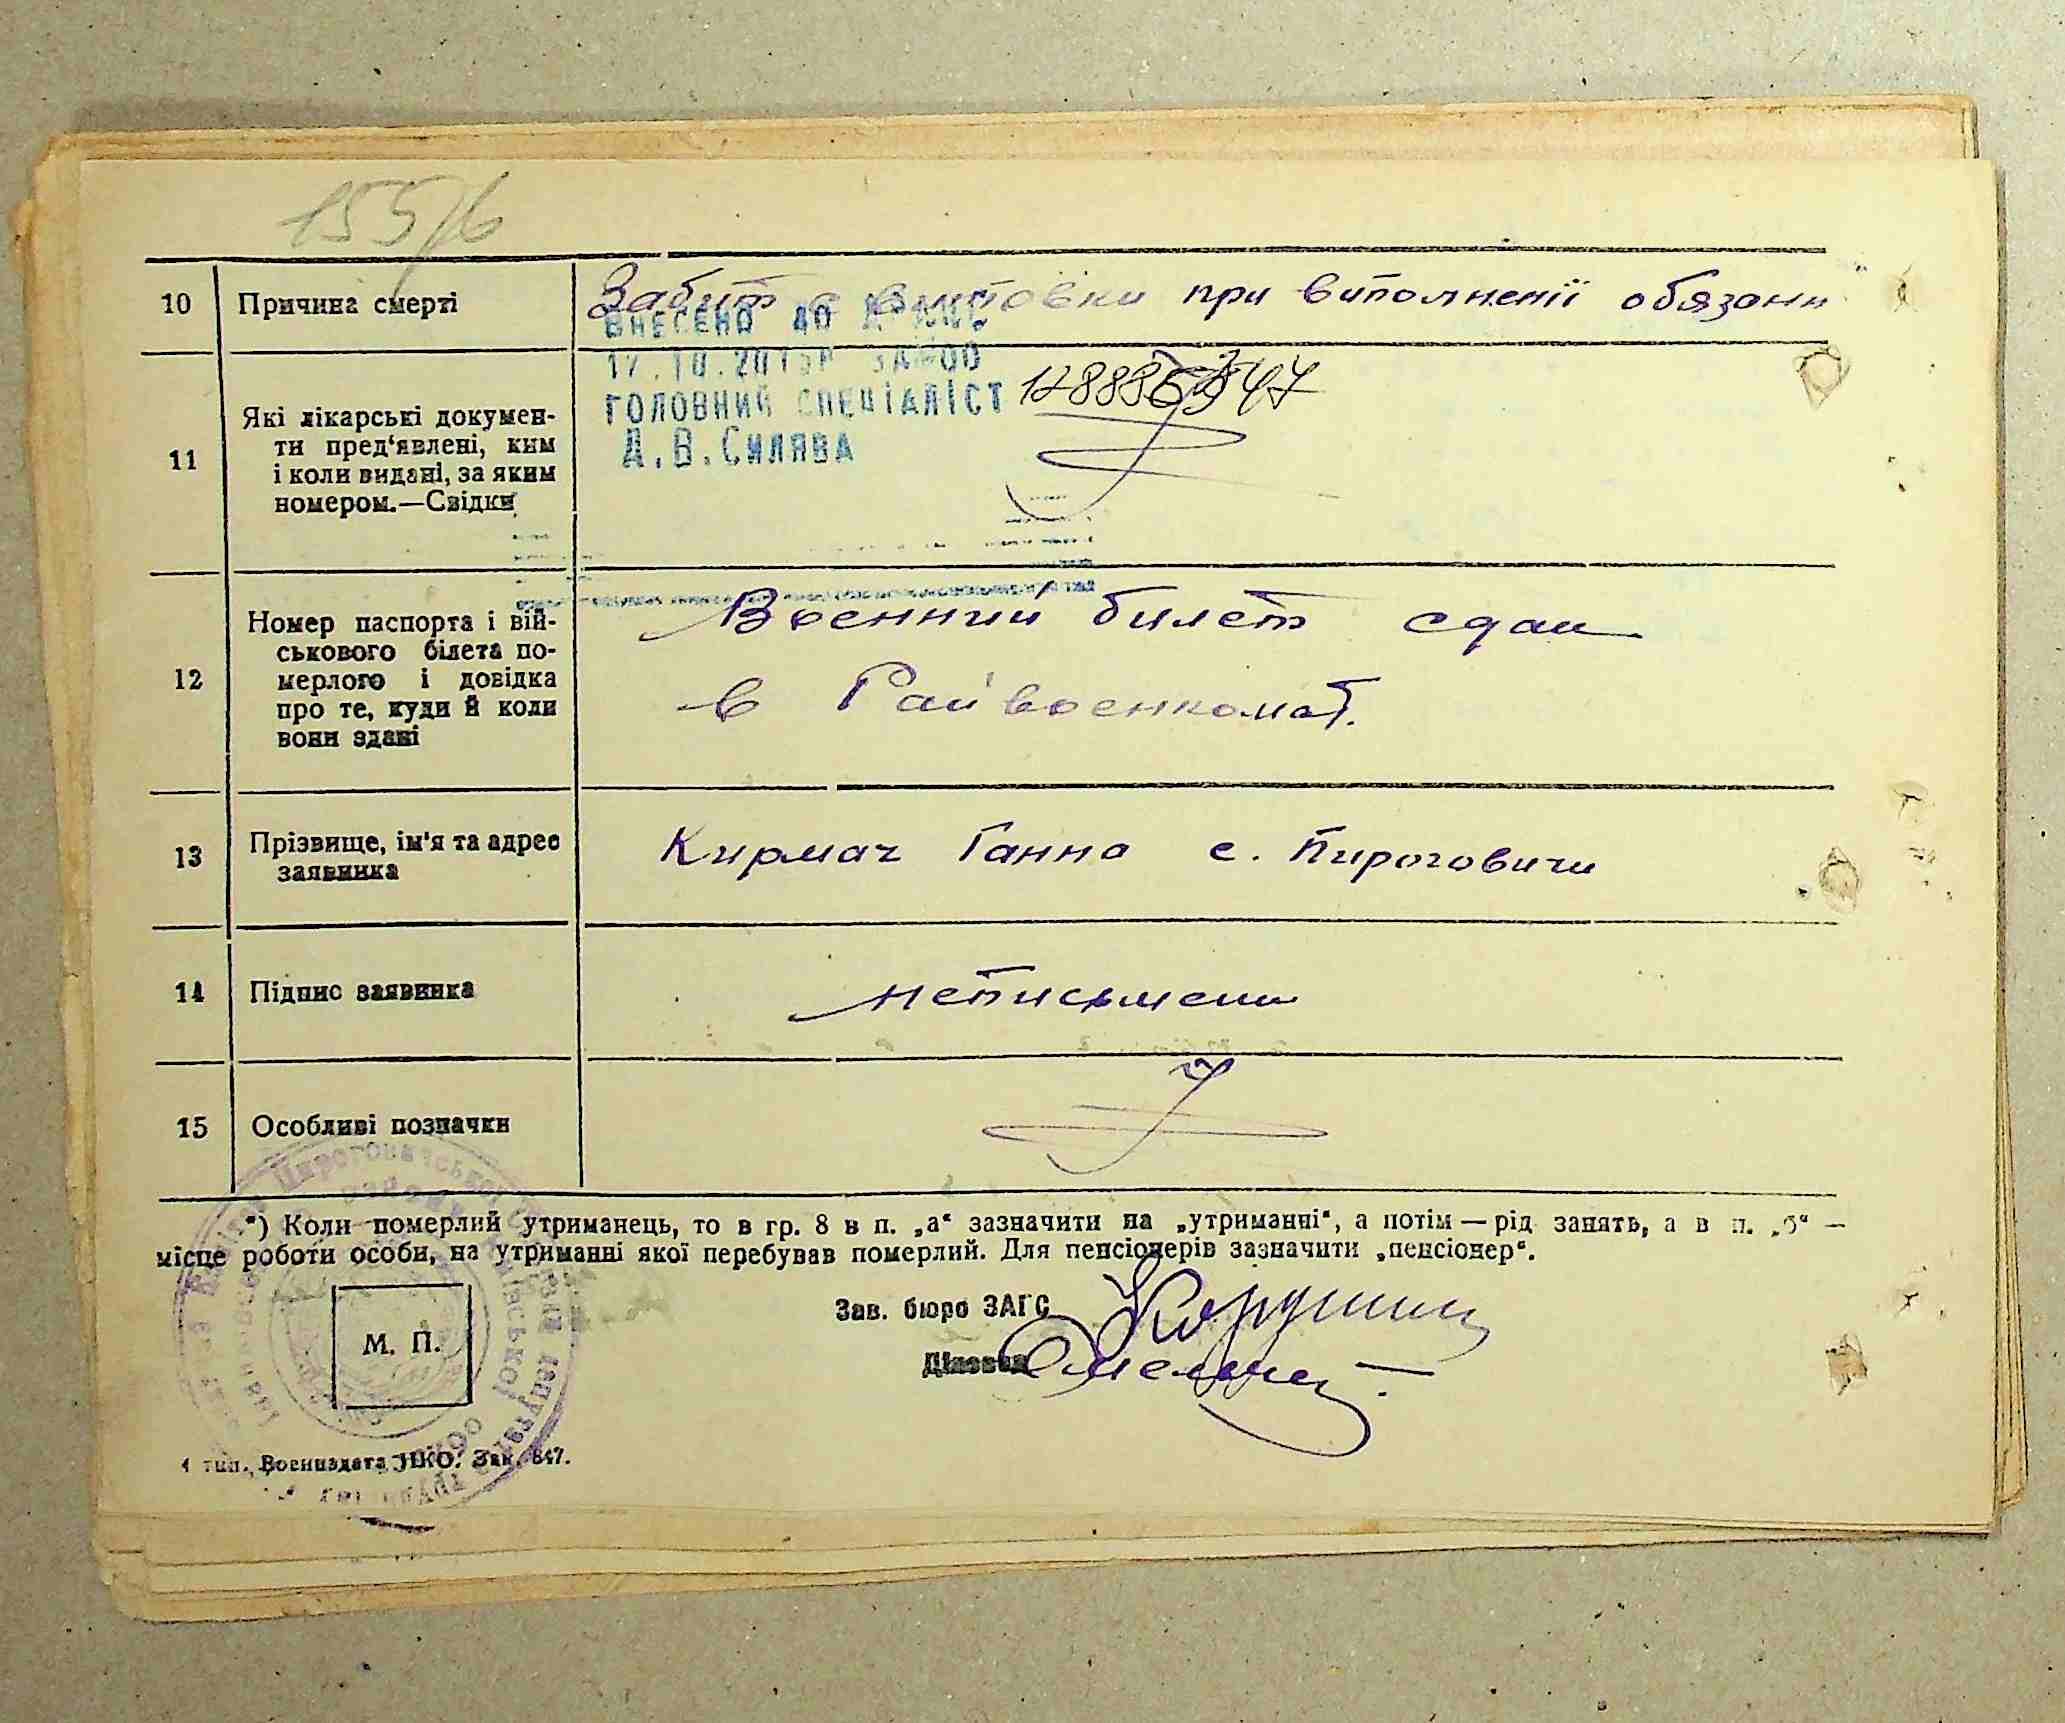 155/6
10 Причина смерті Забит з винтовки при виполненії обязанн
ВНЕСЕНО ДО
ГОЛОВНИЙ СПЕЦІАЛІСТ
Д.В.СИЛЯВА
11 Які лікарські докумен-
ти пред‘явлені, ким
і коли видані, за яким
номером.—Свідки
12 Номер паспорта і вій-
ськового білета по-
мерлого і довідка
про те, куди й коли
вони здані
Военний билет сдан
в Райвоенкомат.
13 Прізвище, ім'я та адрес
заявника
Кирмач Ганна с. Пироговичи
14 Підпис заявника неписьмени
15 Особливі позначки
*) Коли померлий утриманець, то в гр. 8 в п. „а“ зазначити на „утриманні“, а потім — рід занять, а в п. „б“ —
місце роботи особи, на утриманні якої перебував померлий. Для пенсіонерів зазначити „пенсіонер“.
Зав. бюро ЗАГС
Діловод
М. П.
4 тип. Воениздата НКО. Зак. 847.